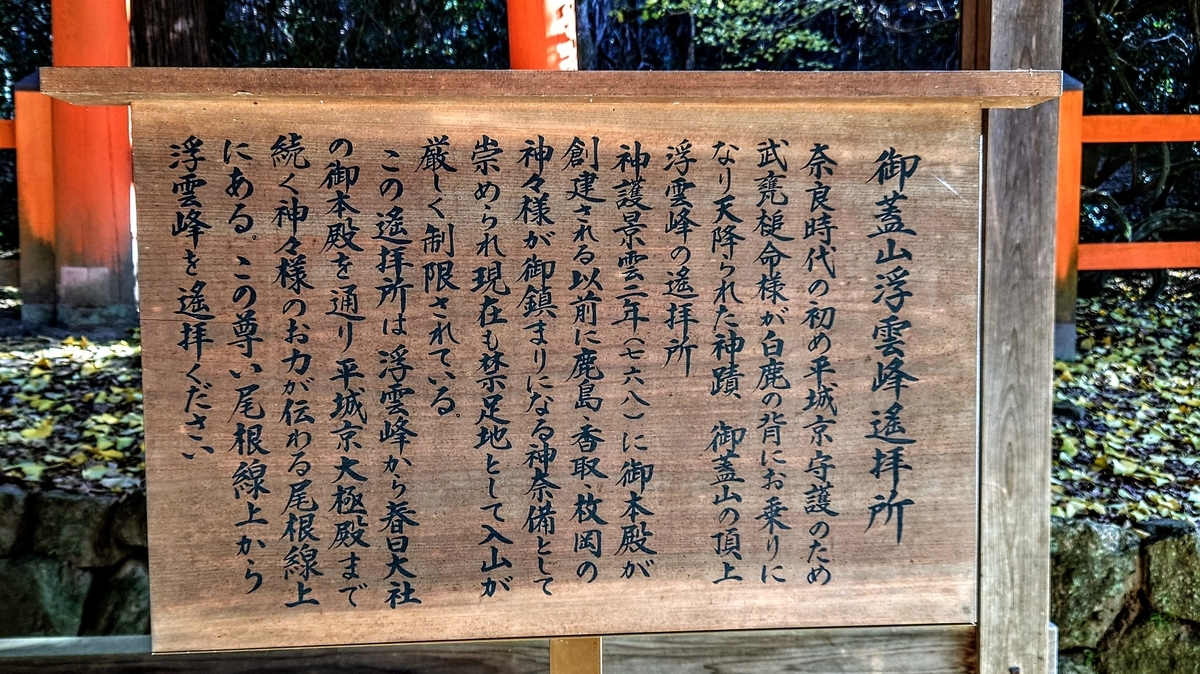 御蓋山浮雲峰遙拝所
奈良時代の初め平城京守護のため
武甕槌命様が白鹿の背にお乗りに
なり天降られた神蹟 御蓋山の頂上
浮雲峰の遙拝所
神護景雲二年(七六八)に御本殿が
創建される以前に鹿島・香取・枚岡の
神々様が御鎮まりになる神奈備として
崇められ現在も禁足地として入山が
厳しく制限されている。
この遙拝所は 浮雲峰から春日大社
の御本殿を通り 平城京大極殿まで
続く神々様のお力が伝わる尾根線上
にある。この尊い尾根線上から
浮雲峰を遙拝ください